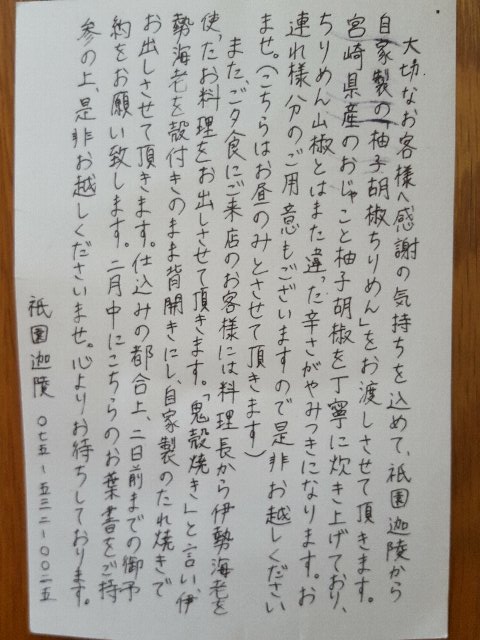 大切なお客様へ感謝の気持ちを込めて、祇園迦陵から
自家製の「柚子胡椒ちりめん」をお渡しさせて頂きます。
宮崎県産のおじゃこと柚子胡椒を丁寧に炊き上げており、
ちりめん山椒とはまた違った辛さがやみつきになります。お
連れ様分のご用意もございますので是非お越しください
ませ。(こちらはお昼のみとさせて頂きます)
また、ご夕食にご来店のお客様には料理長から伊勢海老を
使ったお料理をお出しさせて頂きます。「鬼殻焼き」と言い、伊
勢海老を殻付きのまま背開きにし、自家製のたれ焼きで
お出しさせて頂きます。仕込みの都合上、二日前までの御予
約をお願い致します。二月中にこちらのお葉書をご持
参の上、是非お越しくださいませ。心よりお待ちしております。
祇園迦陵 〇七五-五三二-〇〇二五